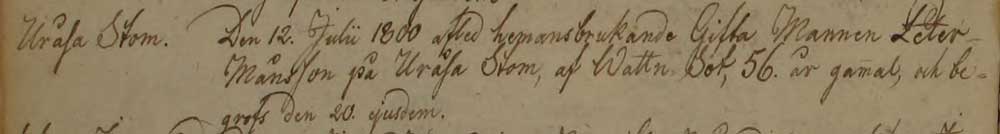 Uråsa Stom. Den 12. Julii 1800 afled hemansbrukande Gifta Mannen Peter
Månsson på Uråsa Stom, af Wattn Sot, 56. år gam̅al, och be=
grofs den 20. ejusdem.